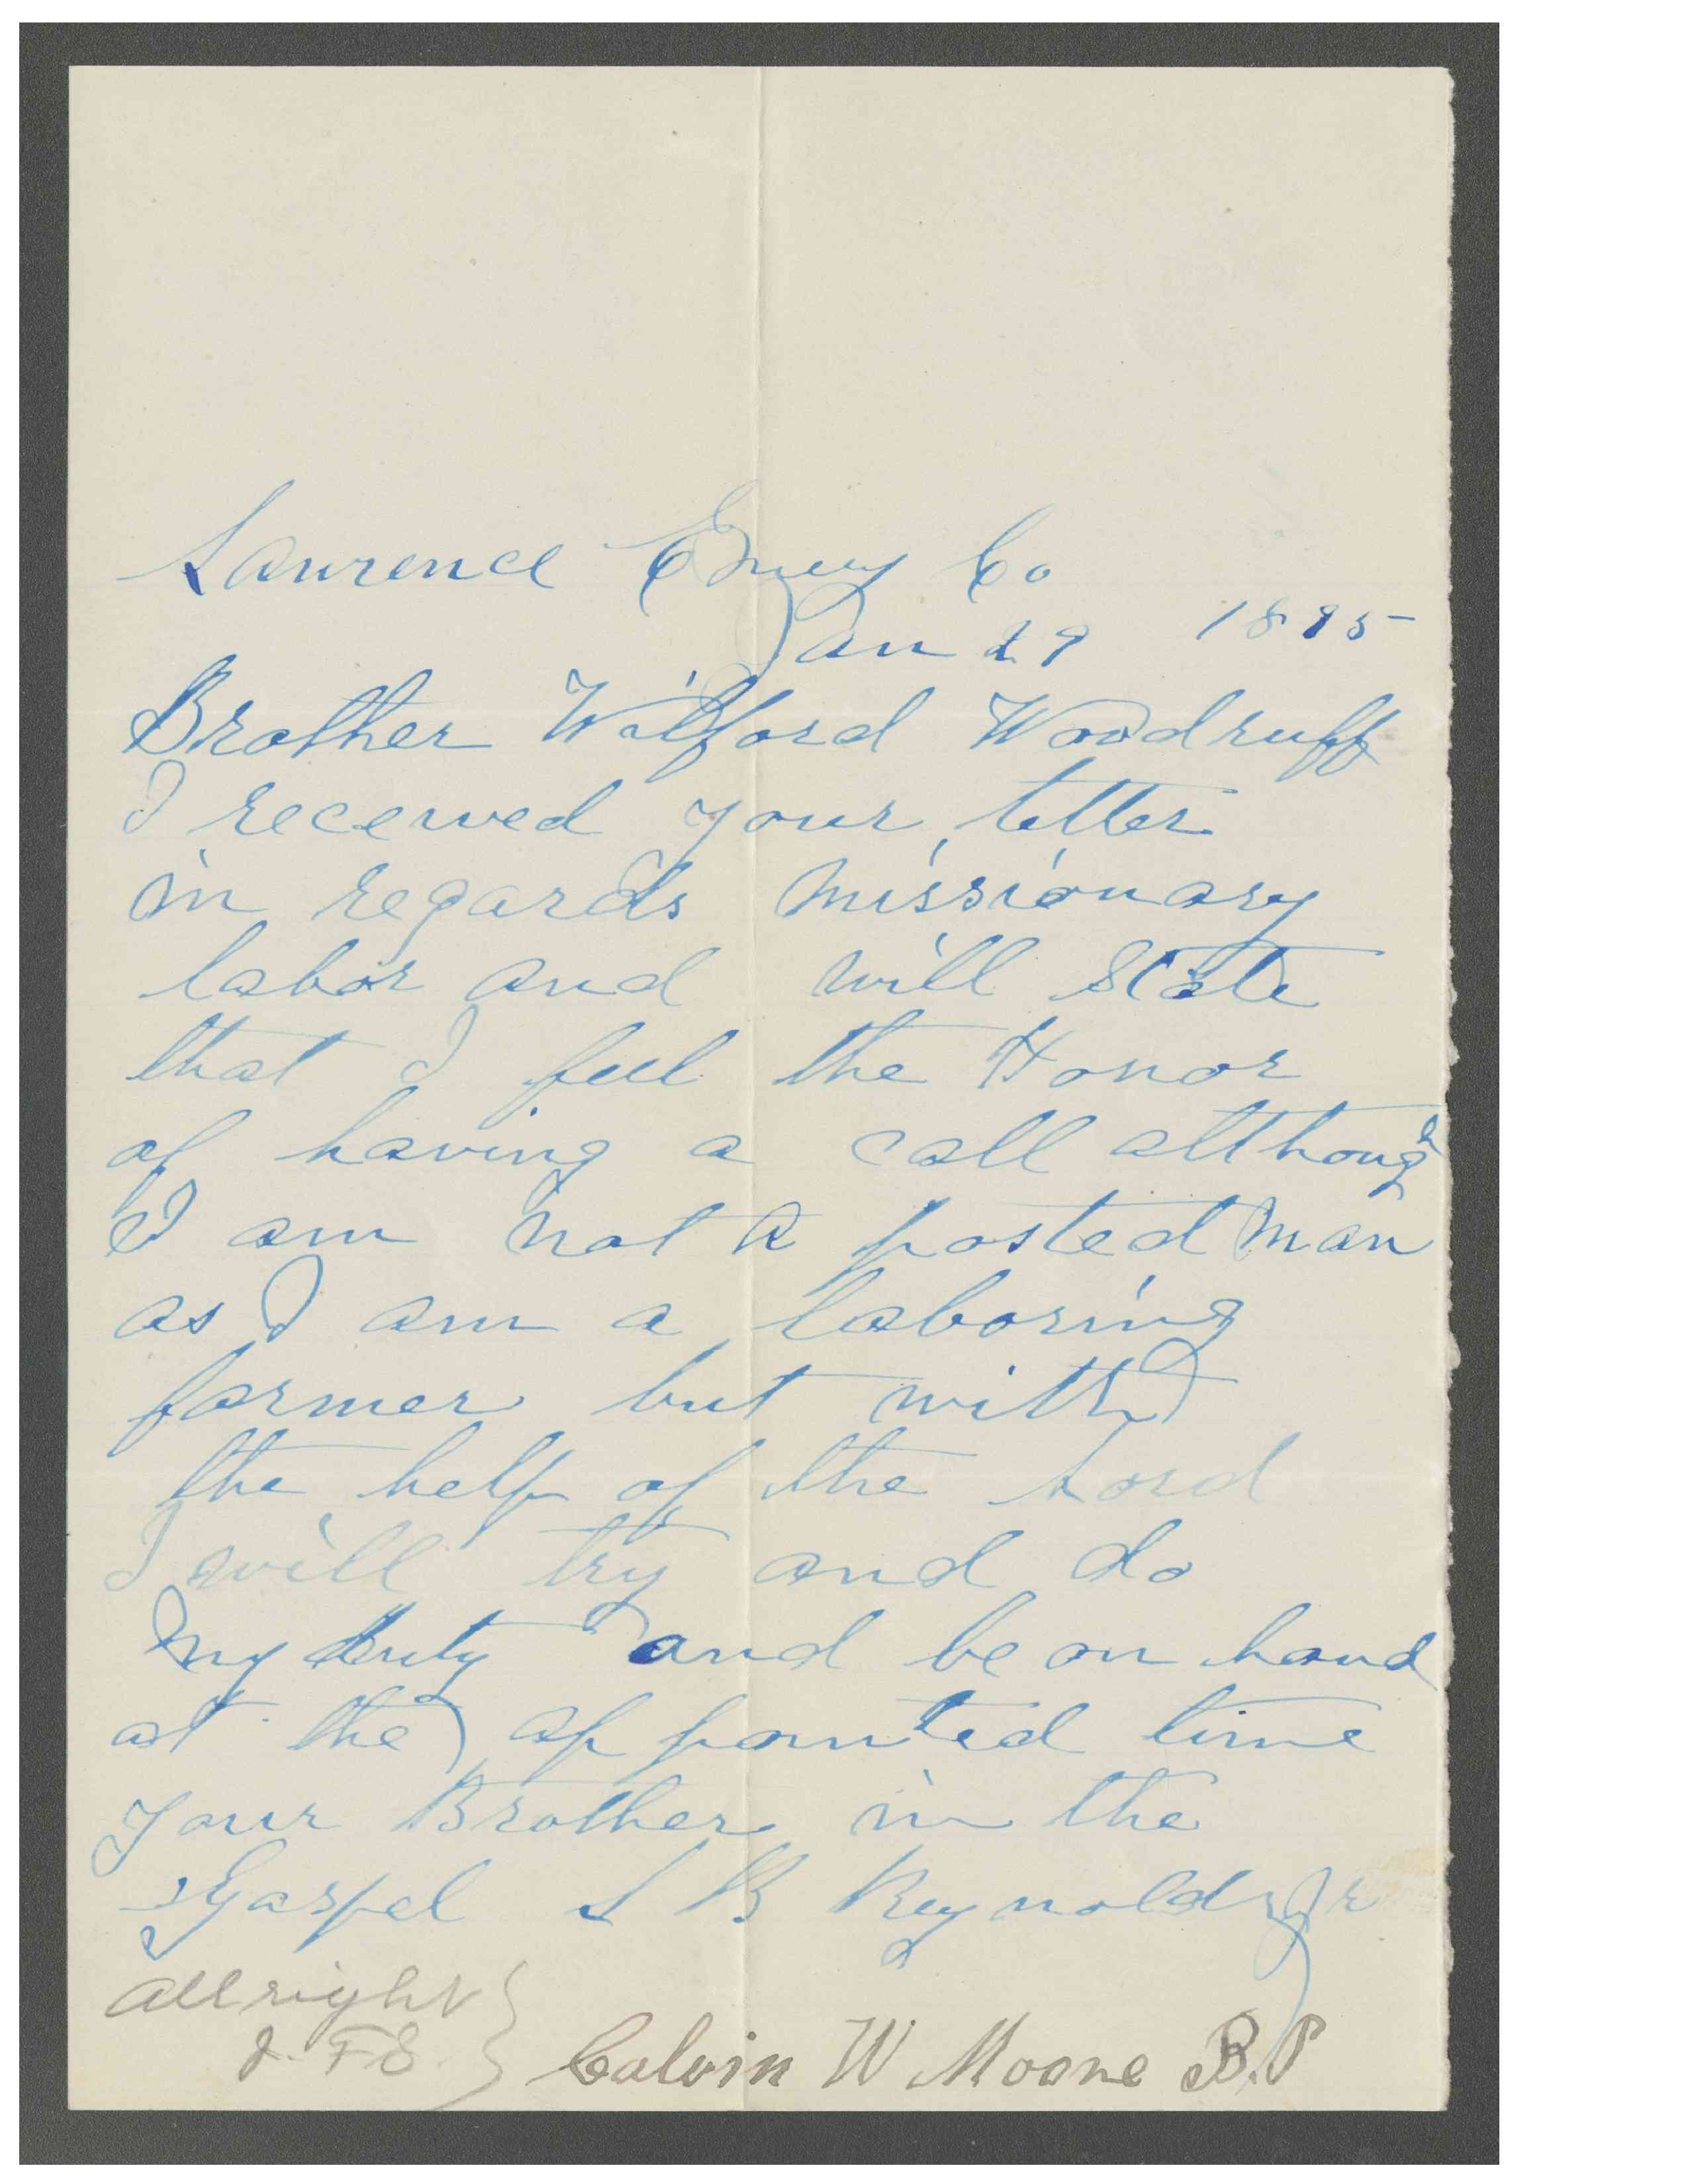 Lawrence Emery Co
Jan 29 1895
Brother Wilford Woodruff
I received your letter
in regards missionary
labor and will State
that I feel the Honor
of having a call although
I am not a posted man
as I am a laboring
farmer but with
the help of the Lord
I will try and do
my duty and be on hand
at the appointed time
your Brother in the
Gospel L B Reynolds Jr
All right
J. F. S.
Calvin W Moore B.P